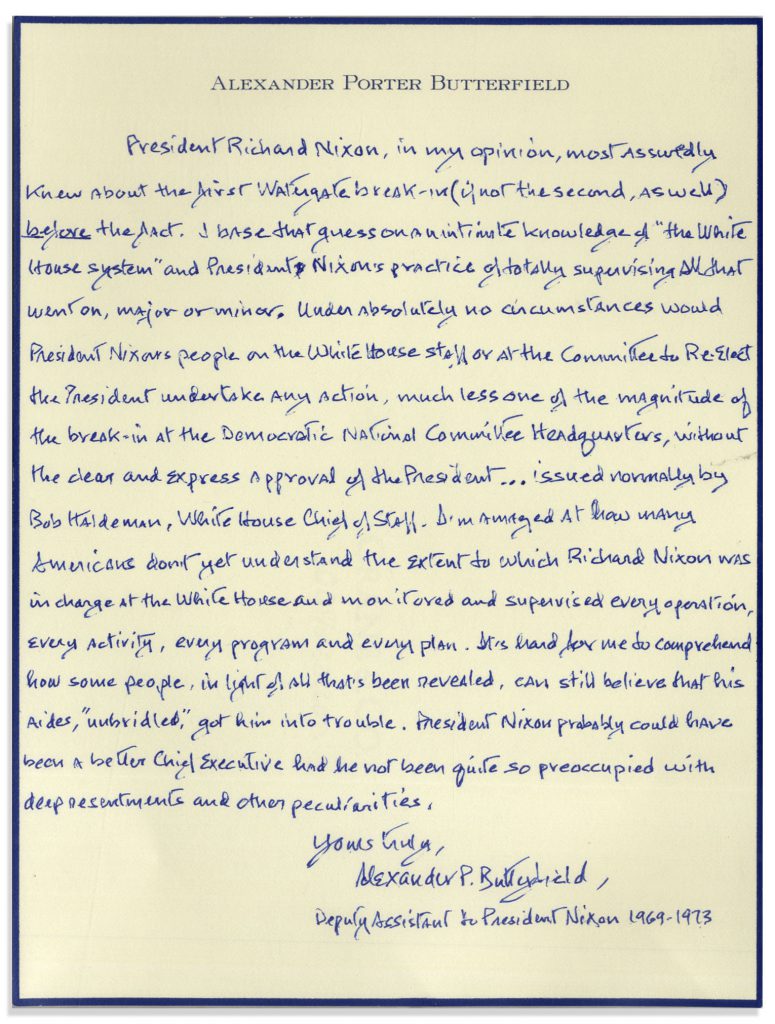 ALEXANDER PORTER BUTTERFIELD
President Richard Nixon, in my opinion, most assuredly
knew about the first Watergate break-in (if not the second, as well)
before the fact. I base that guess on an intimate knowledge of "the White
House system" and President Nixon's practice of totally supervising all that
went on, major or minor. Under absolutely no circumstances would
President Nixon's people on the White House staff or at the Committee to Re-Elect
the President undertake any action, much less one of the magnitude of
the break-in at the Democratic National Committee Headquarters, without
the clear and express approval of the President... issued normally by
Bob Haldeman, White House Chief of Staff. I'm amazed at how many
Americans don't yet understand the extent to which Richard Nixon was
in charge at the White House and monitored and supervised every operation,
every activity, every program and every plan. It's hard for me to comprehend
how some people, in light of all that's been revealed, can still believe that his
aides, "unbridled," got him into trouble. President Nixon probably could have
been a better Chief Executive had he not been quite so preoccupied with
deep resentments and other peculiarities.
Yours truly,
Alexander P. Butterfield,
Deputy Assistant to President Nixon 1969-1973